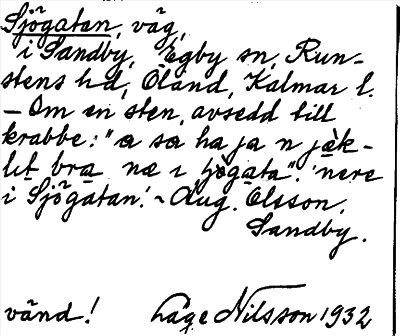 Sjögatan, väg,
i Sandby, Egby sn, Run-
stens hd, Öland, Kalmar l.
— Om en sten, avsedd till
krabbe: "a sa ha ja n jäk-
lit bra næ i sjögata". 'nere
i Sjögatan'. ~ Aug. Olsson,
Sandby.
vänd! Låge Nilsson 1932